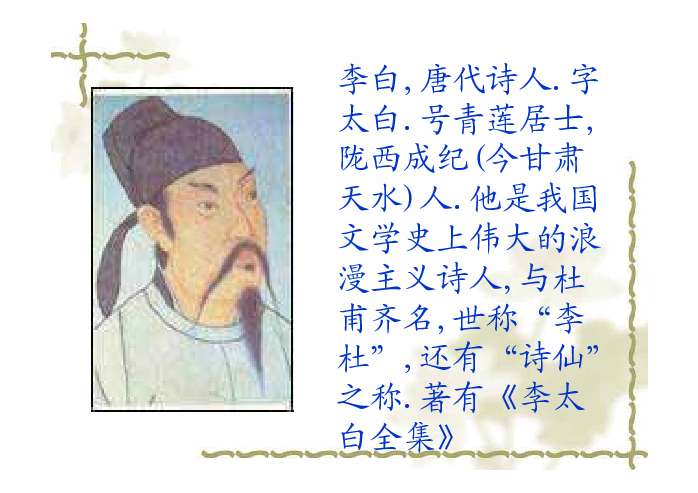 李白,唐代诗人.字
太白.号青莲居士,
陇西成纪(今甘肃
天水)人.他是我国
文学史上伟大的浪
漫主义诗人,与杜
甫齐名,世称“李
杜”,还有“诗仙”
之称.著有《李太
白全集》